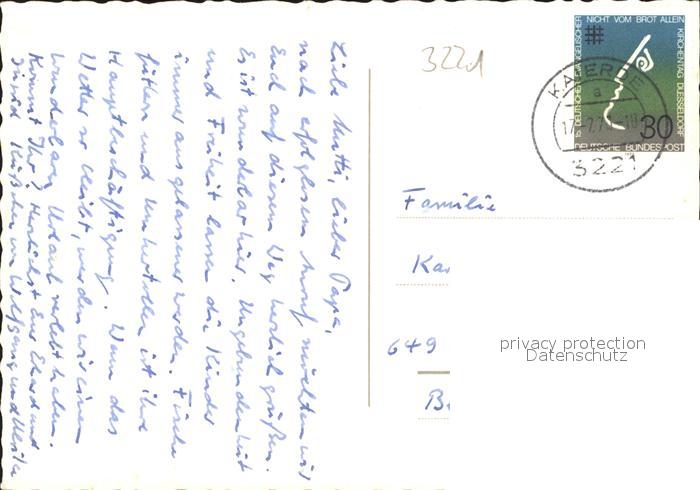 Liebe Mutti, lieber Papa,
nach erfolglosem Anruf möchten wir
Euch auf diesem Weg herzlich grüßen.
Es ist wunderbar hier. Ungebundenheit
und Freiheit lassen die Kinder
immer ausgelassener werden. Fische
füttern und umhertollen ist ihre
Hauptbeschäftigung. Wenn das
Wetter so bleibt, werden wir einen
wunderbaren Urlaub verlebt haben.
Kommt Ihr? Herzlichst Eure und
Kinder Wolfgang und
3221
NICHT VOM BROT ALLEIN
15. DEUTSCHER EVANGELISCHER
KIRCHENTAG DÜSSELDORF
30
DEUTSCHE BUNDESPOST
a
3221
Familie
Ka
649
B
privacy protection
Datenschutz